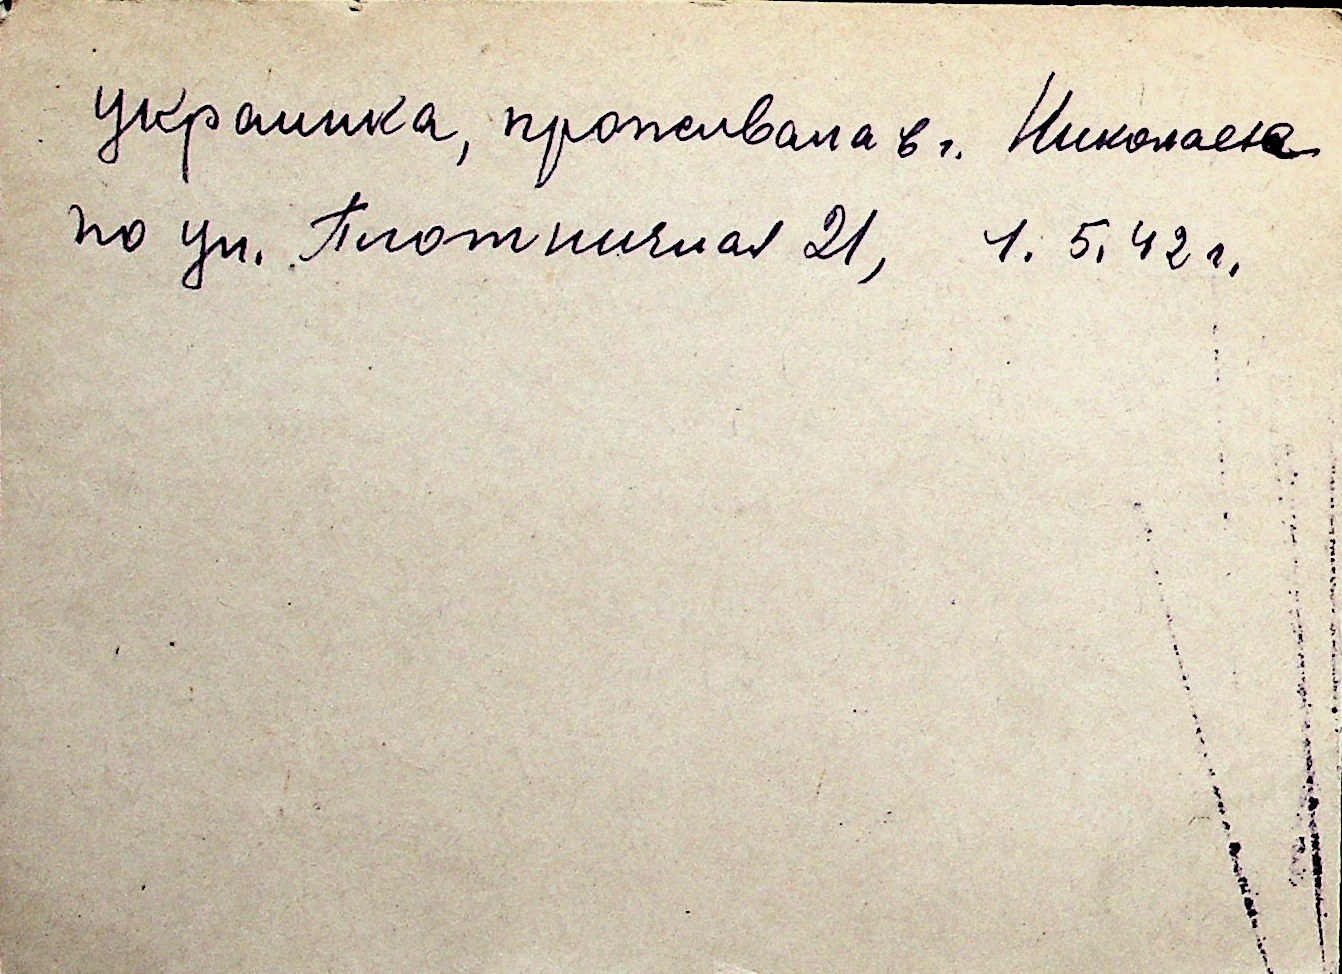 украинка, проживала в г. Николаеве
по ул. Плотничная 21, 1.5.42 г.